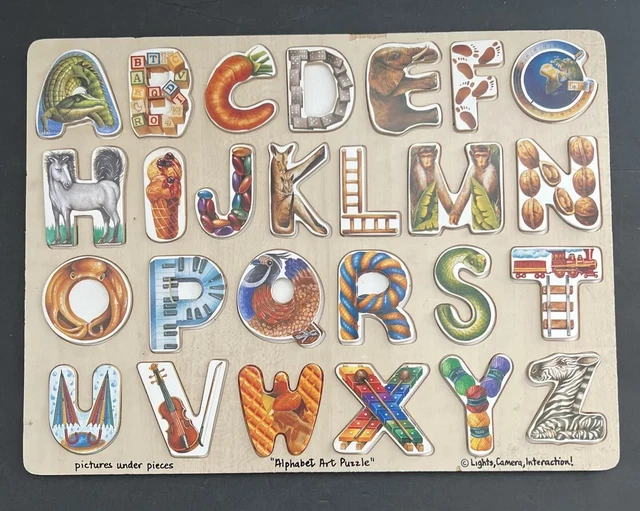 A B C D E F G
H I J K L M N
O P Q R S T
U V W X Y Z
pictures under pieces
"Alphabet Art Puzzle"
© Lights, Camera, Interaction!